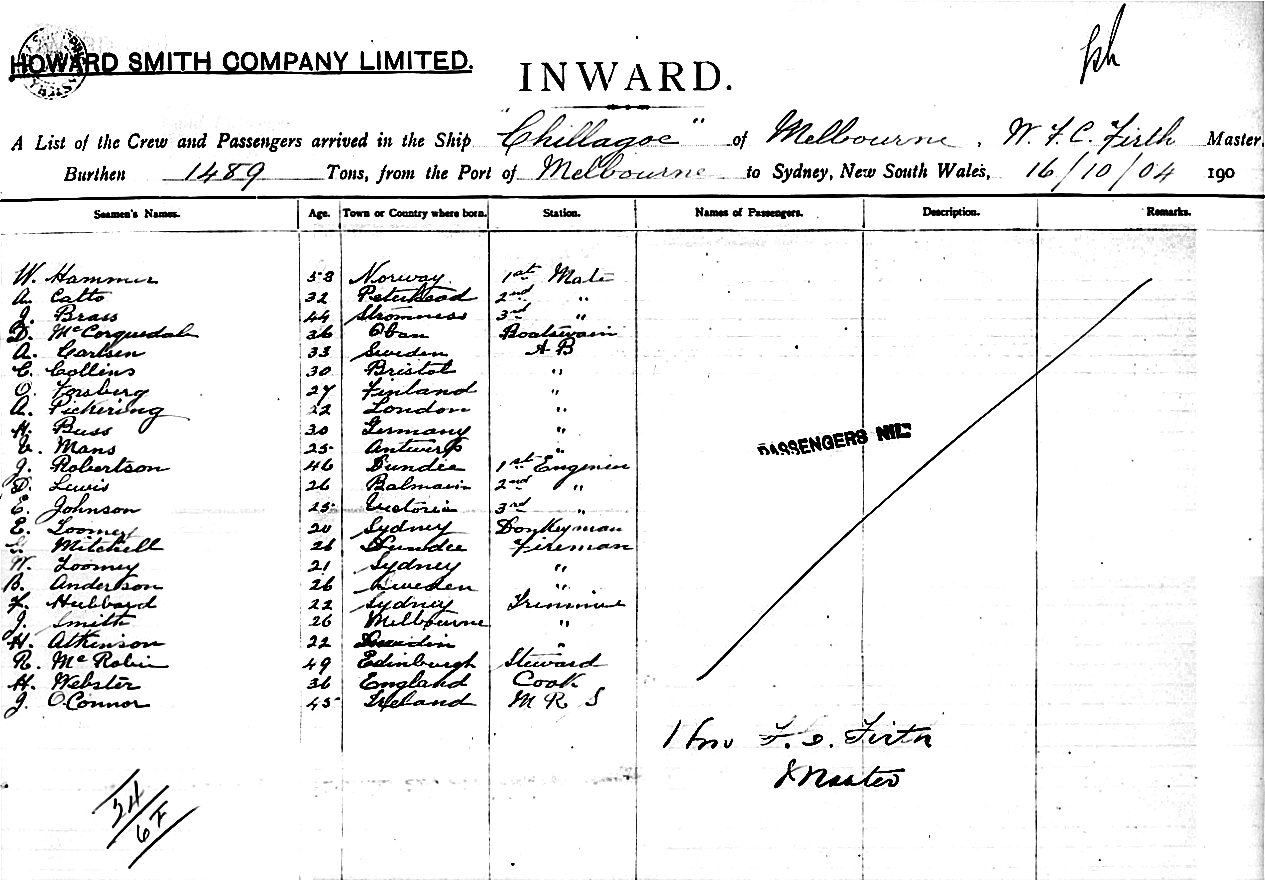 HOWARD SMITH COMPANY LIMITED.
INWARD.
A List of the Crew and Passengers arrived in the Ship "Chillagoe" of Melbourne, W. F. C. Firth Master.
Burthen 1489 Tons, from the Port of Melbourne to Sydney, New South Wales, 16/10/04 190
Seamen's Names. Age. Town or Country where born. Station. Names of Passengers. Description. Remarks.
W. Hammer 58 Norway 1st Mate
A. Catto 32 Peterhead 2nd "
J. Brass 44 Stromness 3rd "
D. McCorquedale 36 Oban Boatswain
A. Carlsen 33 Sweden A B
C. Collins 30 Bristol "
O. Forsberg 27 Finland "
A. Pickering 22 London "
H. Buss 30 Germany "
Mans 25 Antwerp "
J. Robertson 46 Dundee 1st Engineer
D. Lewis 26 Balmain 2nd "
E. Johnson 25 Victoria 3rd "
E. Toomey 20 Sydney Donkeyman
Mitchell 26 Dundee Fireman
W. Toomey 21 Sydney "
B. Anderson 26 Sweden "
F. Hubbard 22 Sydney Trimmer
J. Smith 26 Melbourne "
H. Atkinson 22 "
R. McRobie 49 Edinburgh Steward
H. Webster 36 England Cook
J. O'Connor 45 Ireland M R S
PASSENGERS NIL
Firth
Master
24
6F